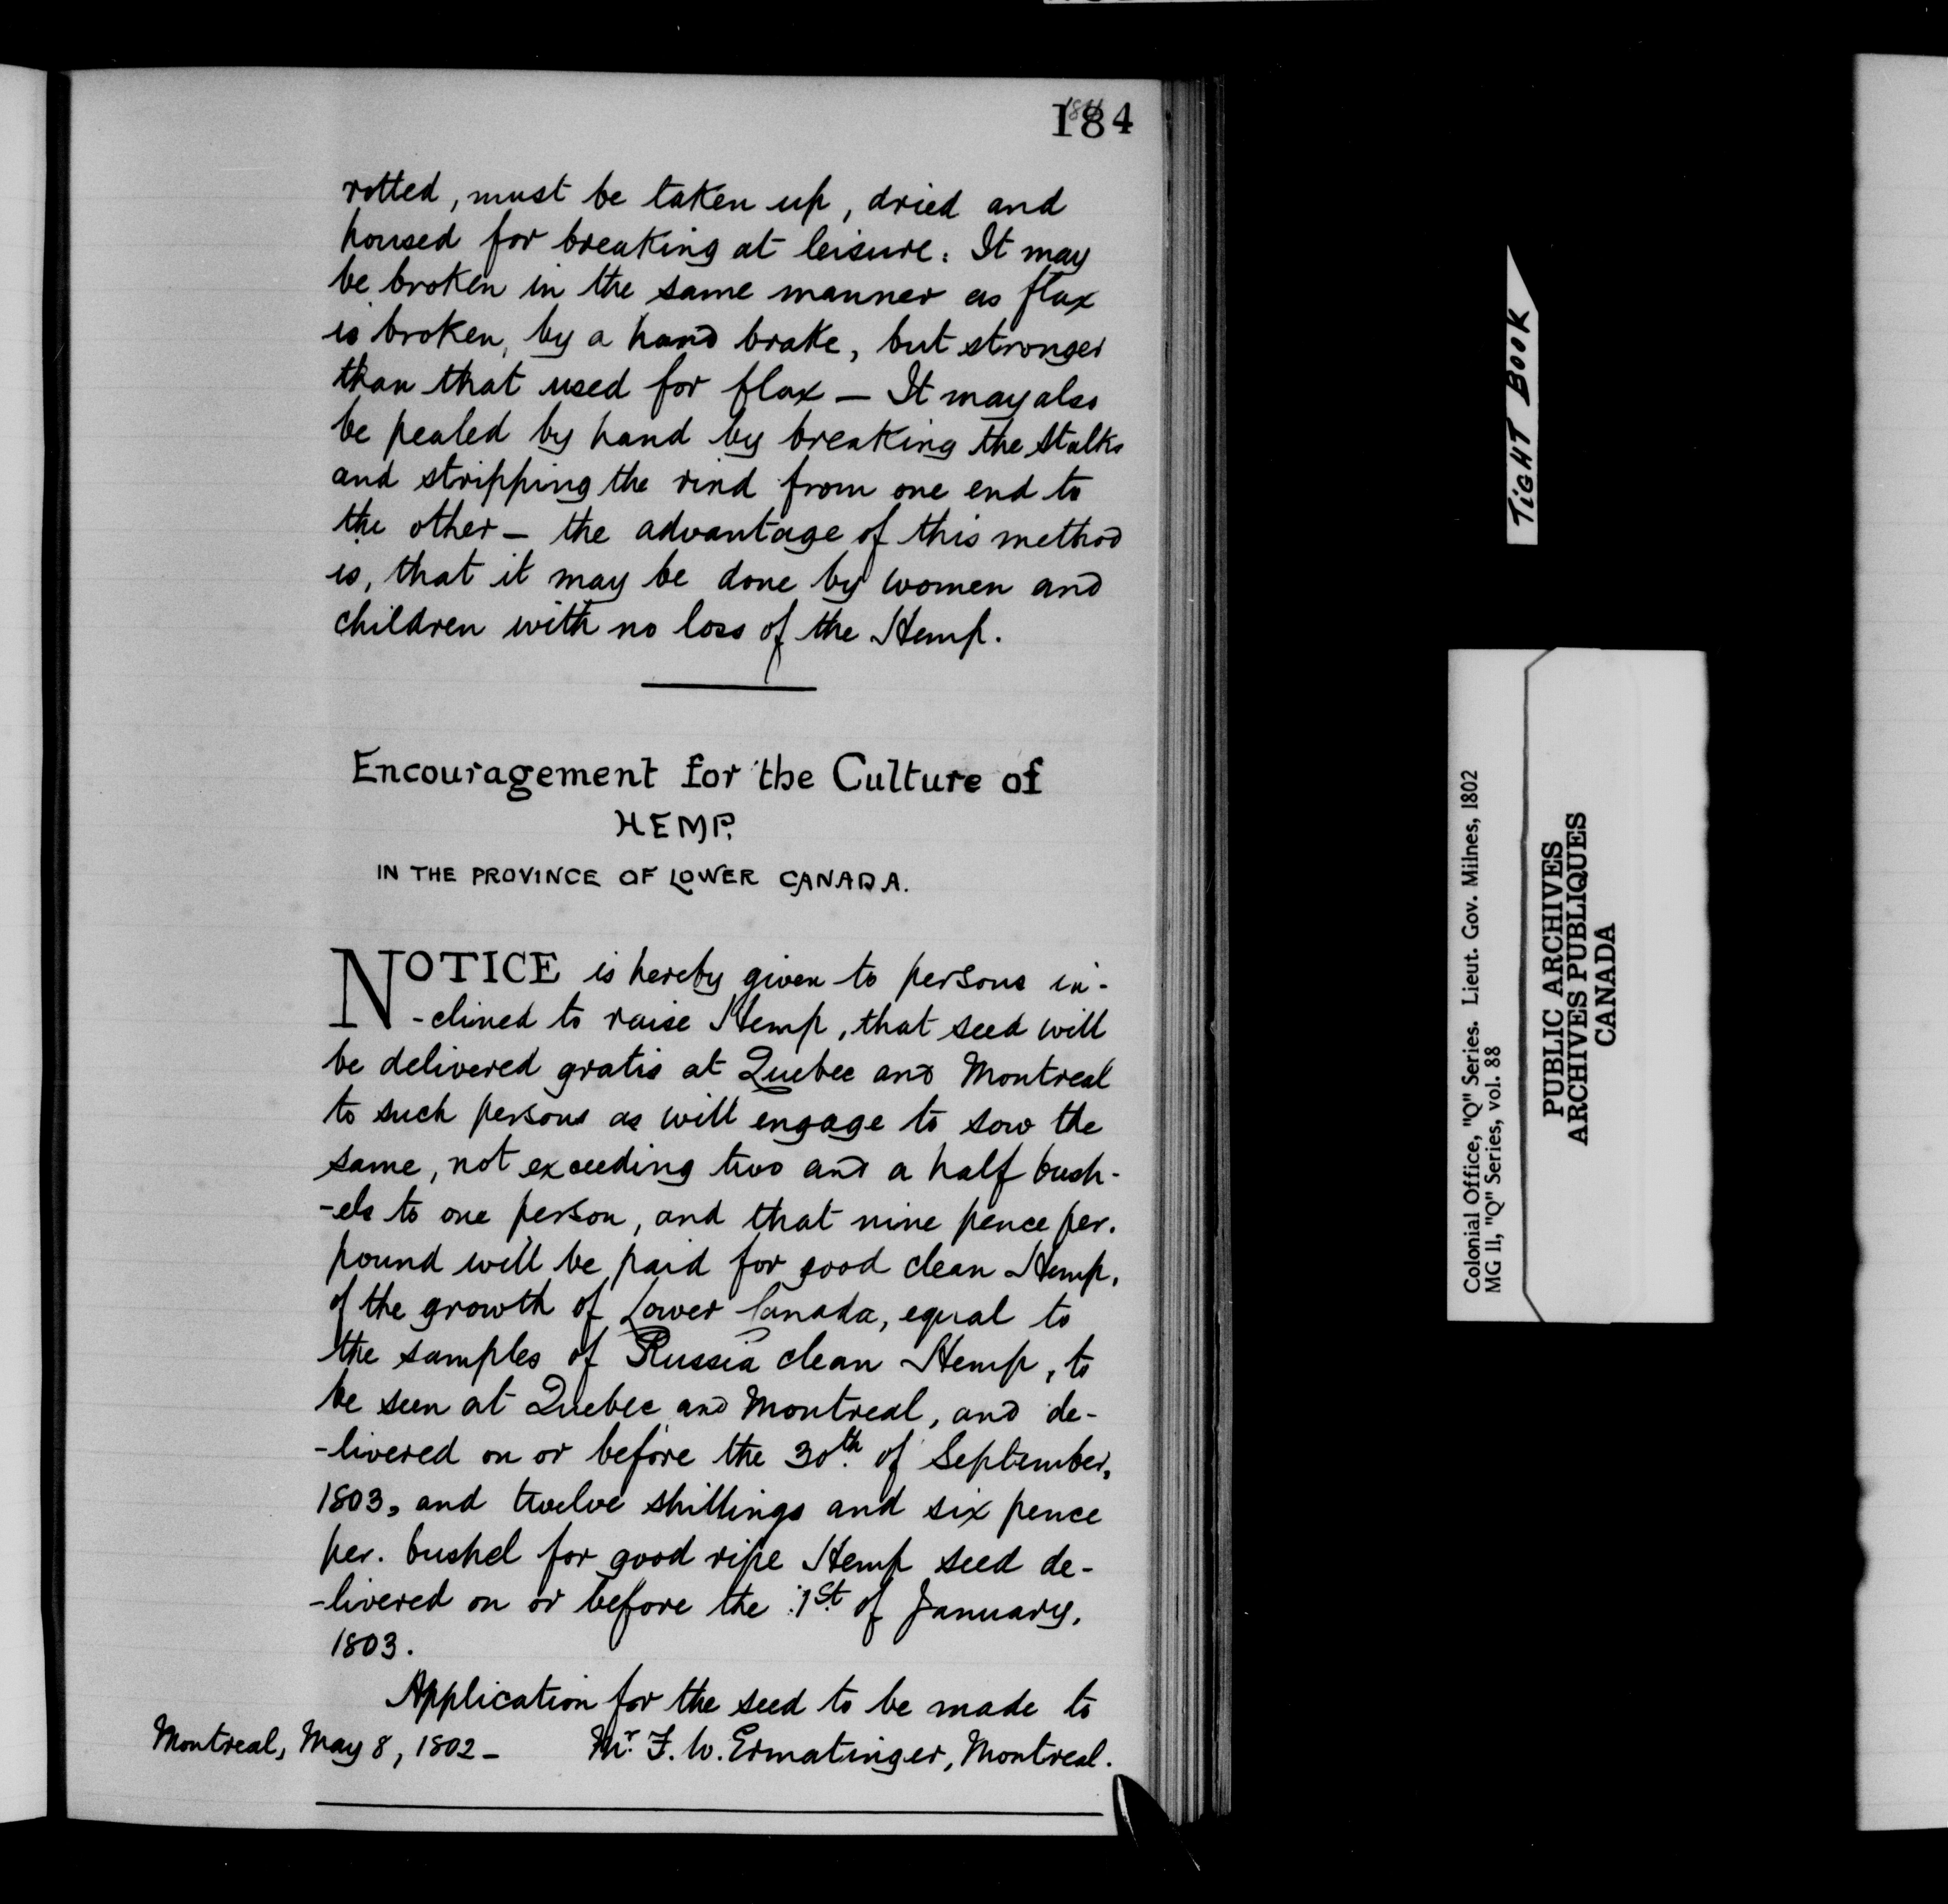 184
rotted, must be taken up, dried and
housed for breaking at leisure. It may
be broken in the same manner as flax
is broken, by a hand brake, but stronger
than that used for flax — It may also
be pealed by hand by breaking the stalks
and stripping the rind from one end to
the other — the advantage of this method
is, that it may be done by women and
children with no loss of the Hemp.
Encouragement for the Culture of
HEMP.
IN THE PROVINCE OF LOWER CANADA.
NOTICE is hereby given to persons in-
-clined to raise Hemp, that seed will
be delivered gratis at Quebec and Montreal
to such persons as will engage to sow the
same, not exceeding two and a half bush-
-els to one person, and that nine pence per.
pound will be paid for good clean Hemp,
of the growth of Lower Canada, equal to
the samples of Russia clean Hemp, to
be seen at Quebec and Montreal, and de-
-livered on or before the 30th. of September,
1803, and twelve shillings and six pence
per. bushel for good ripe Hemp seed de-
-livered on or before the 1st. of January,
1803.
Application for the seed to be made to
Montreal, May 8, 1802 — Mr. F. W. Ermatinger, Montreal.
TIGHT BOOK
Colonial Office, "Q" Series. Lieut. Gov. Milnes, 1802
MG 11, "Q" Series, vol. 88
PUBLIC ARCHIVES
ARCHIVES PUBLIQUES
CANADA